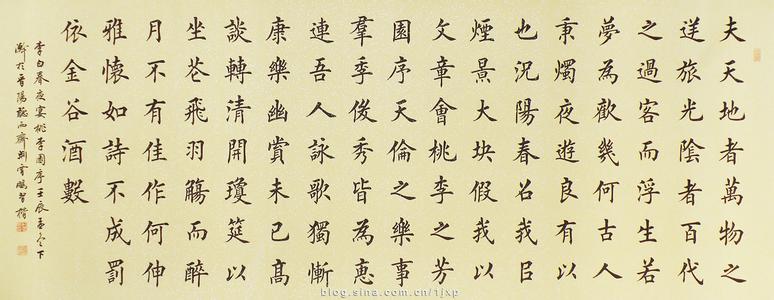 夫天地者萬物之
逆旅光陰者百代
之過客而浮生若
夢為歡幾何古人
秉燭夜遊良有以
也況陽春召我㠯
煙景大塊假我以
文章會桃李之芳
園序天倫之樂事
羣季俊秀皆為惠
連吾人詠歌獨慚
康樂幽賞未已高
談轉清開瓊筵以
坐花飛羽觴而醉
月不有佳作何伸
雅懷如詩不成罰
依金谷酒數
李白春夜宴桃李園序壬辰孟冬下
澣於晉陽聽雨齋
blog.sina.com.cn/1jxp